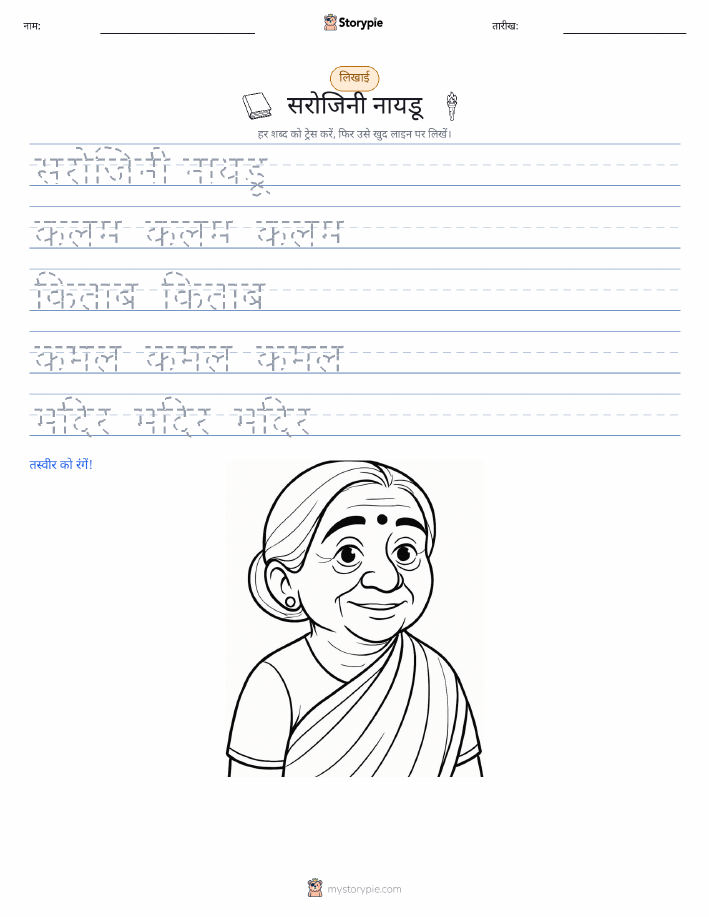 नाम:
Storypie
तारीख:
लिखाई
सरोजिनी नायडू
हर शब्द को ट्रेस करें, फिर उसे खुद लाइन पर लिखें।
सरोजिनी नायडू
कलम कलम कलम
किताब किताब
कमल कमल कमल
मंदिर मंदिर मंदिर
तस्वीर को रंगें!
mystorypie.com